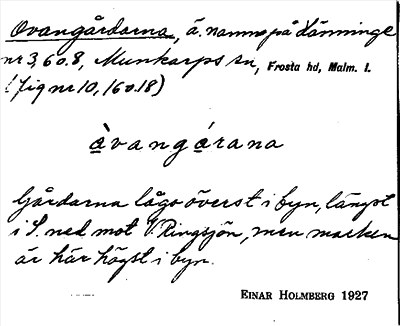 Ovangårdarna, ä. namn på Hänninge
nr 3, 6 o. 8, Munkarps sn, Frosta hd, Malm. l.
(Jfig nr 10, 16 o. 18)
àvangárana
Gårdarna lågo överst i byn, längst
i S. ned mot V. Ringsjön, men marken
är här högst i byn.
EINAR HOLMBERG 1927